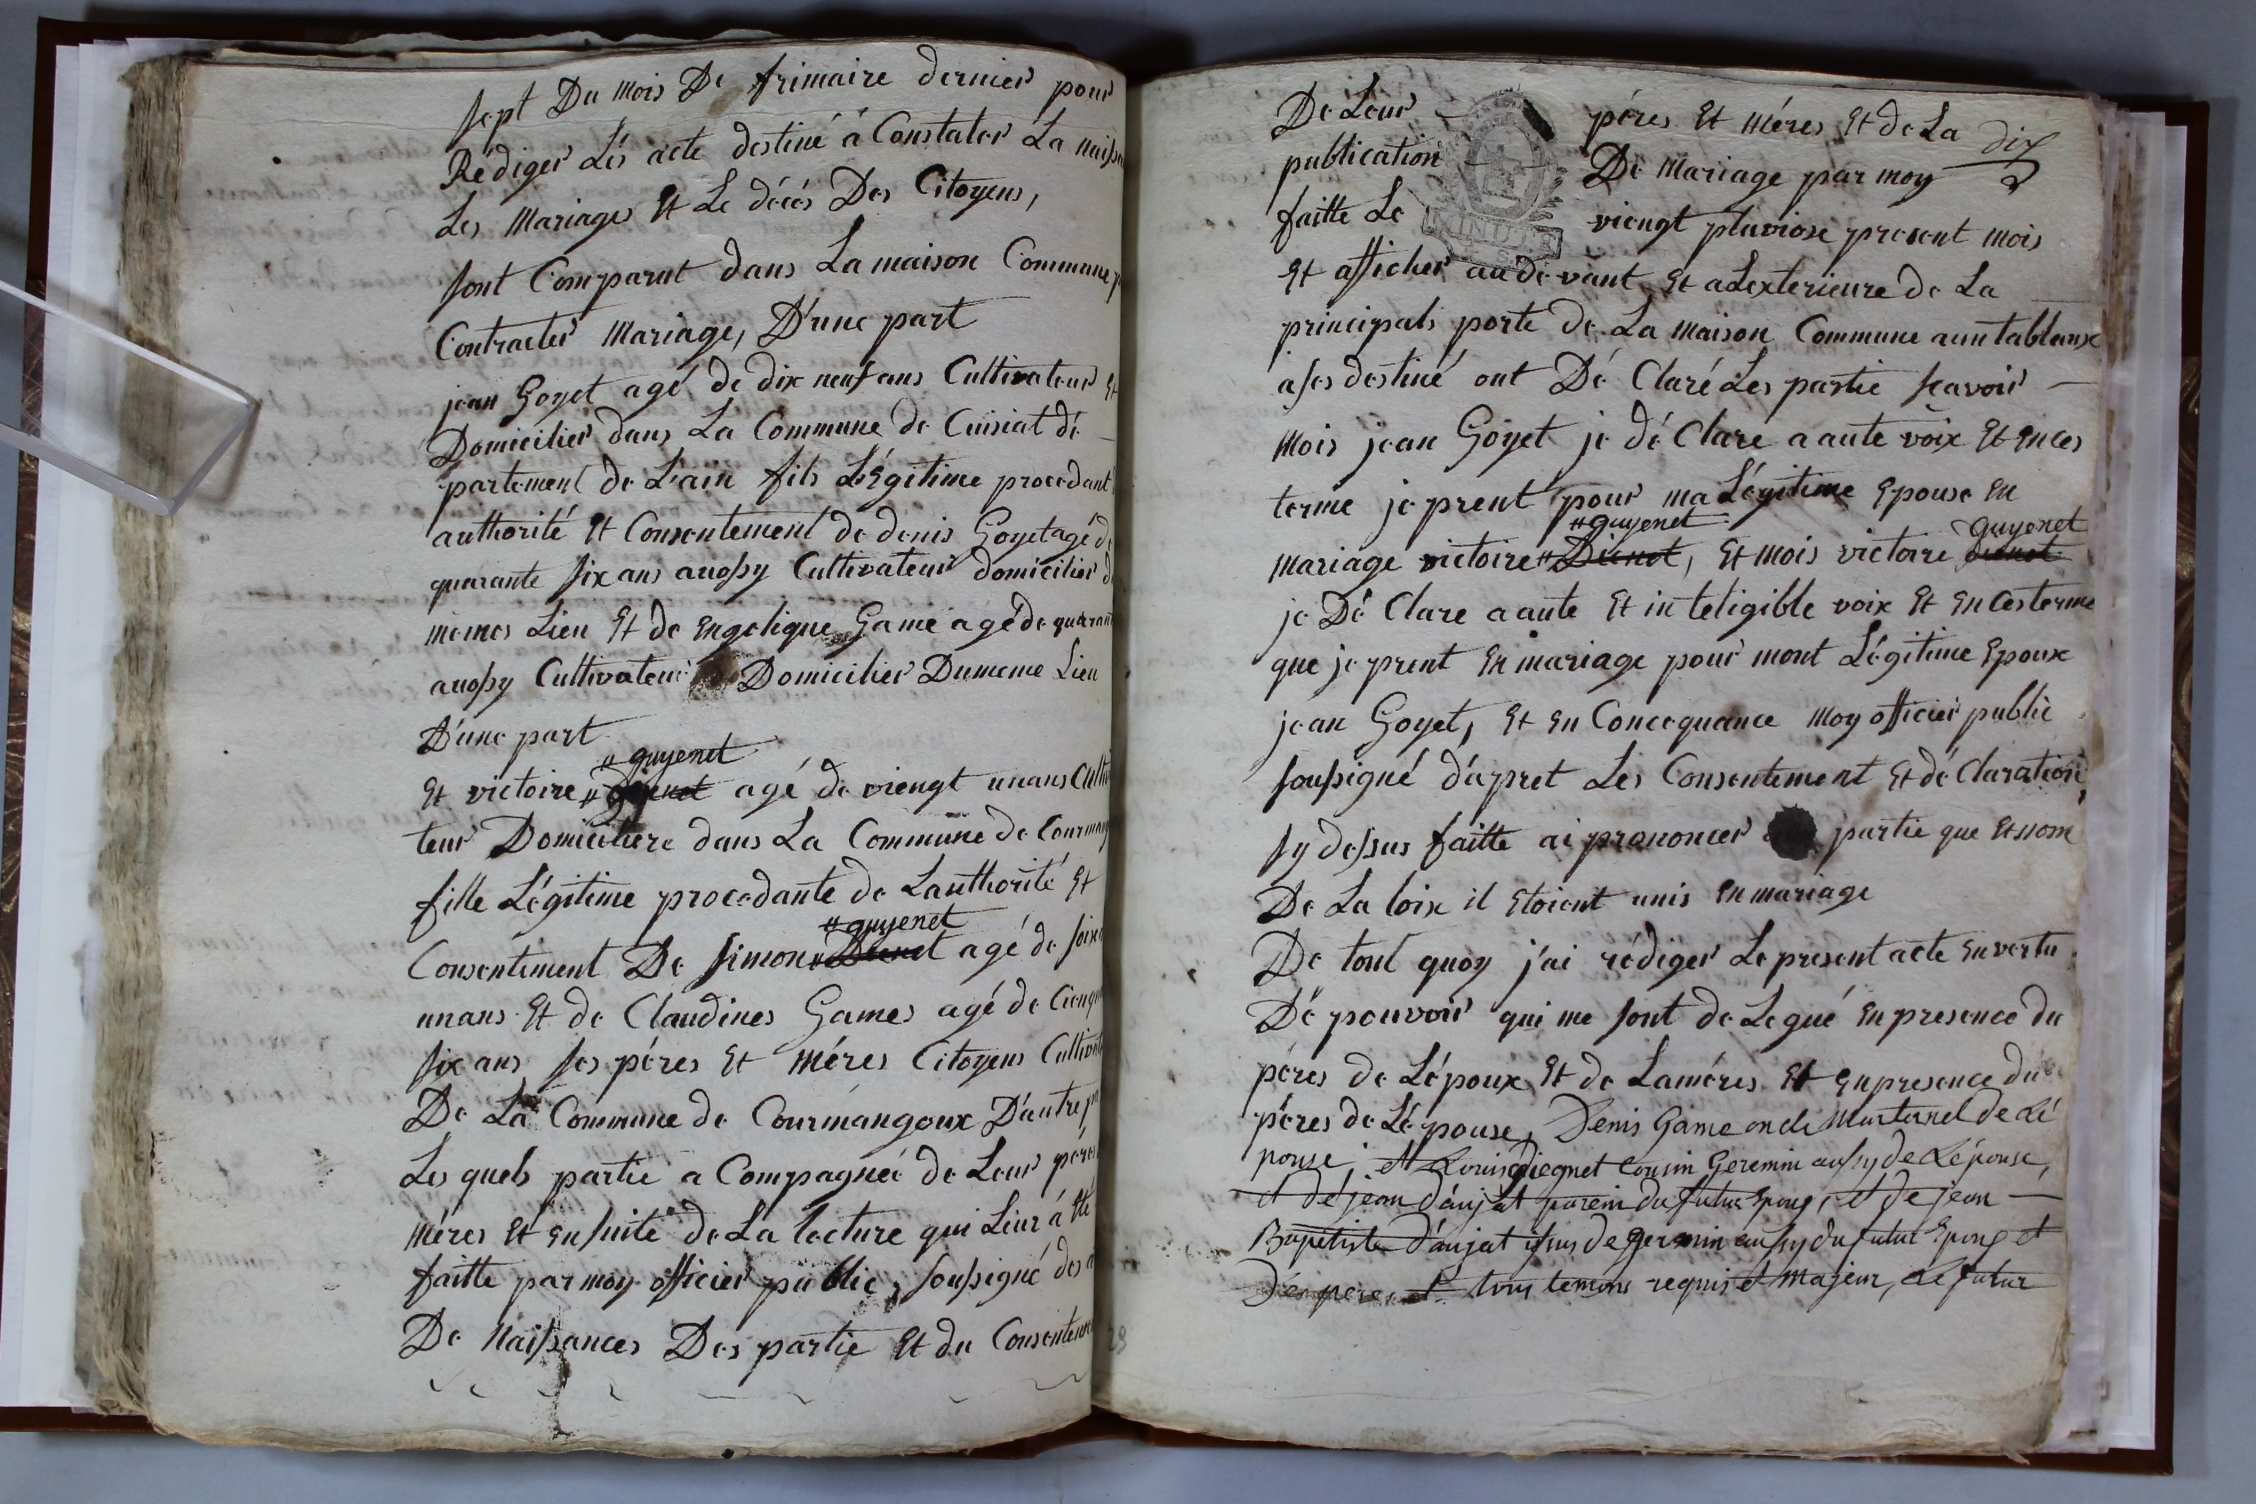 sept Du mois De frimaire dernier pour
Rédiger Lés acte destiné á Constater La naissa
Les Mariages Et Le décés Des Citoyens,
sont Comparut dans La maison Commune p
Contracter Mariage, D'une part
jean Goyet agé de dix neuf ans Cultivateur Et
Domicilier dans La Commune de Cuisiat dé
partement de L'ain fils Légitime procedant
authorité Et Consentement de denis Goyet agé de
quarante six ans aussy Cultivateur domicilier d
memes Lieu Et de Engelique Game agé de quaran
aussy Cultivateur Domicilier Dumeme Lieu
D'une part
" guyenet
Et victoire " agé de viengt unans Cultiv
teur Domiciliere dans La Commune de Courmang
fille Légitime procedante de Lauthorité Et
" guyenet
Consentement De Simon " Dienet agé de soixa
unans Et de Claudines Games agé de Cienqu
six ans ses péres Et méres Citoyens Cultivat
De La Commune de Courmangoux D'autre pa
Les quels partie a Compagnée de Leur péres
méres Et ensuite de La lecture qui Leur á Eté
faitte par moy officier public, soussigné des a
De Naissances Des partie Et du Consentemen
29
De Leur péres Et méres Et de La dix
publication De Mariage par moy
faitte Le viengt pluviose present mois
MINUTE
Et afficher au de-vant Et a Lexterieure de La
principals porte de La maison Commune aun tableaux
a ses destiné ont Dé Claré Les partie scavoir
mois jean Goyet je dé Clare a aute voix Et en ces
terme je prent pour ma Légitime Epouse en
" guyenet guyenet
mariage victoire " Dienet, Et mois victoire Dienet
je Dé Clare a aute Et inteligible voix Et en Ces terme
que je prent En mariage pour mont Légitime Epoux
jean Goyet, Et en Concequance moy officier public
soussigné d'apret Les Consentement Et dé Claration,
sy dessus faitte ai prononcer partie que Et nom
De La loix il Etoient unis En mariage
De tout quoy j'ai rédiger Le present acte en vertu
Dé pouvoir qui me sont de Legué En presence du
péres de L'époux Et de La méres Et En presence du
péres de L'épouse, Denis Game oncle Marternel de Lé
pouse; et Louis diegnet Cousin Geremin aussy de Lépouse,
et dé jean d'aujat parein du futur Epoux, et de jean
Baptiste d'aujat issus de germin aussy du futur Epoux et
tous temons requis et Majeur, Le futur